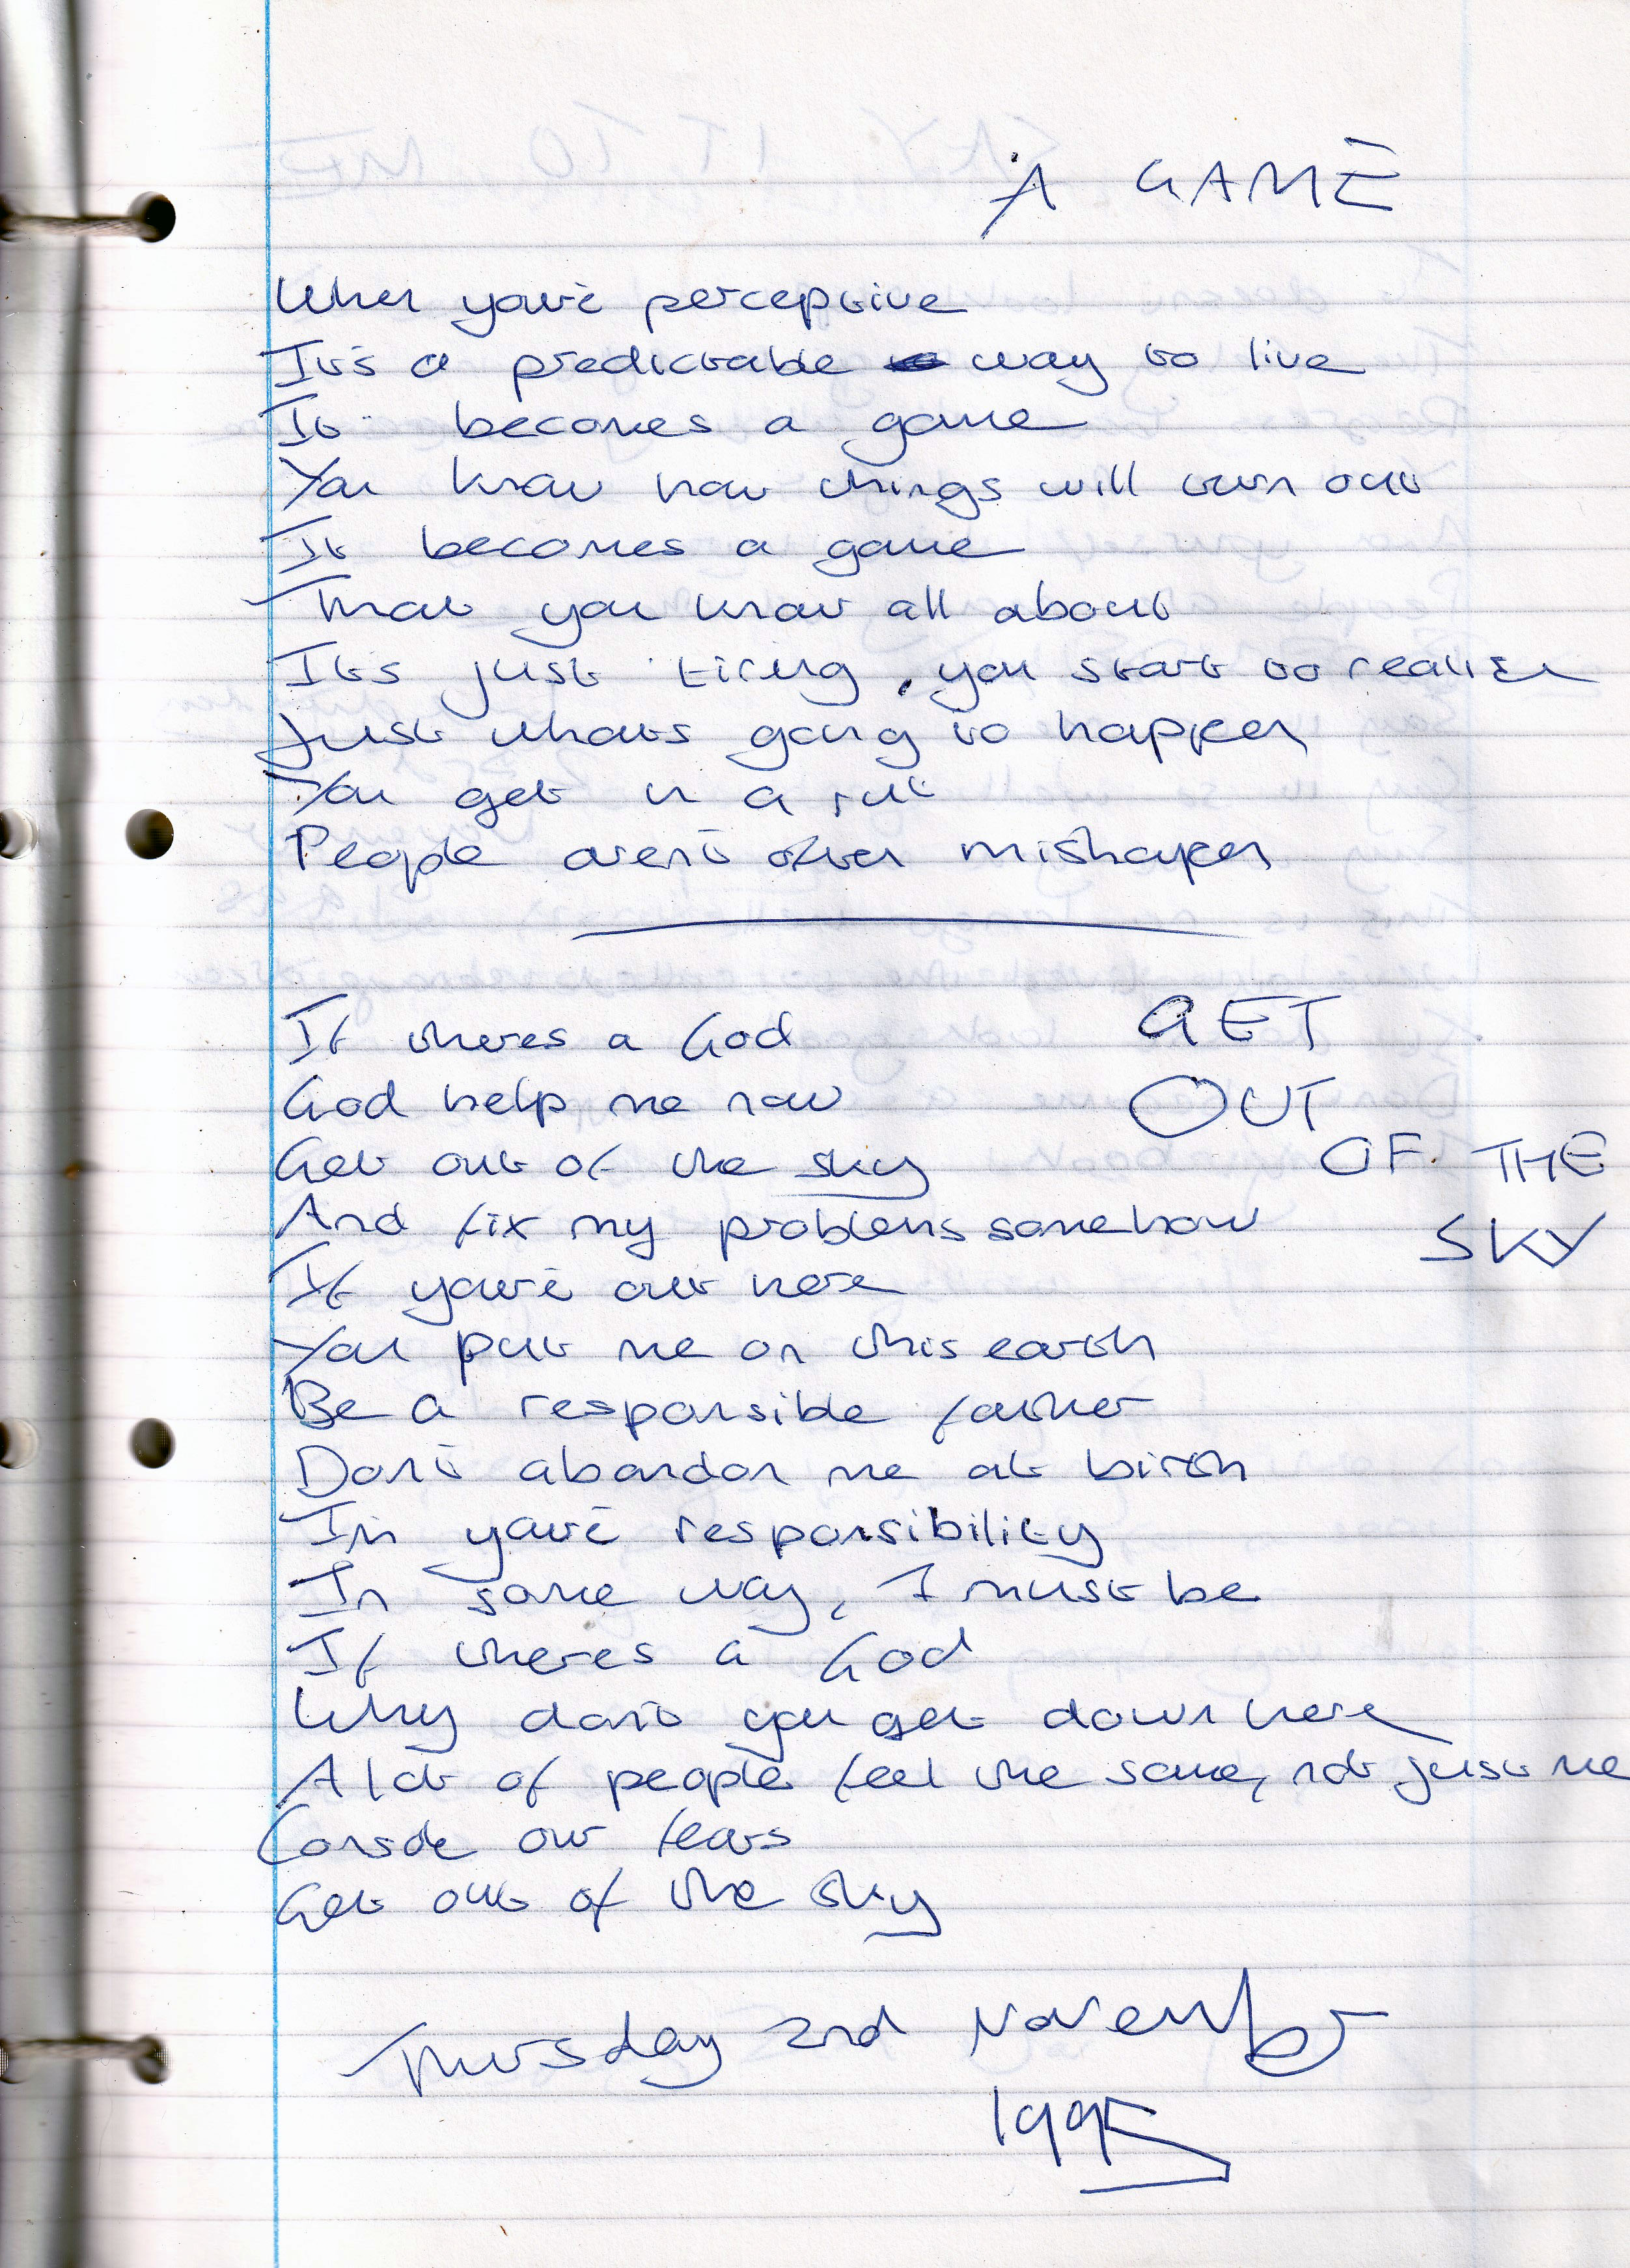 A GAME
When you're perceptive
It's a predictable way to live
It becomes a game
You know how things will turn out
It becomes a game
That you know all about
Its just tiring, you start to realise
Just whats going to happen
You get in a rut
People aren't often mishapen
If theres a God
God help me now
Get out of the sky
And fix my problems somehow
If you're out here
You put me on this earth
Be a responsible father
Don't abandon me at birth
I'm you're responsibility
In some way, I must be
If theres a God
Why don't you get down here
A lot of people feel the same, not just me
Console our fears
Get out of the sky
GET
OUT
OF THE
SKY
Thursday 2nd November
1995